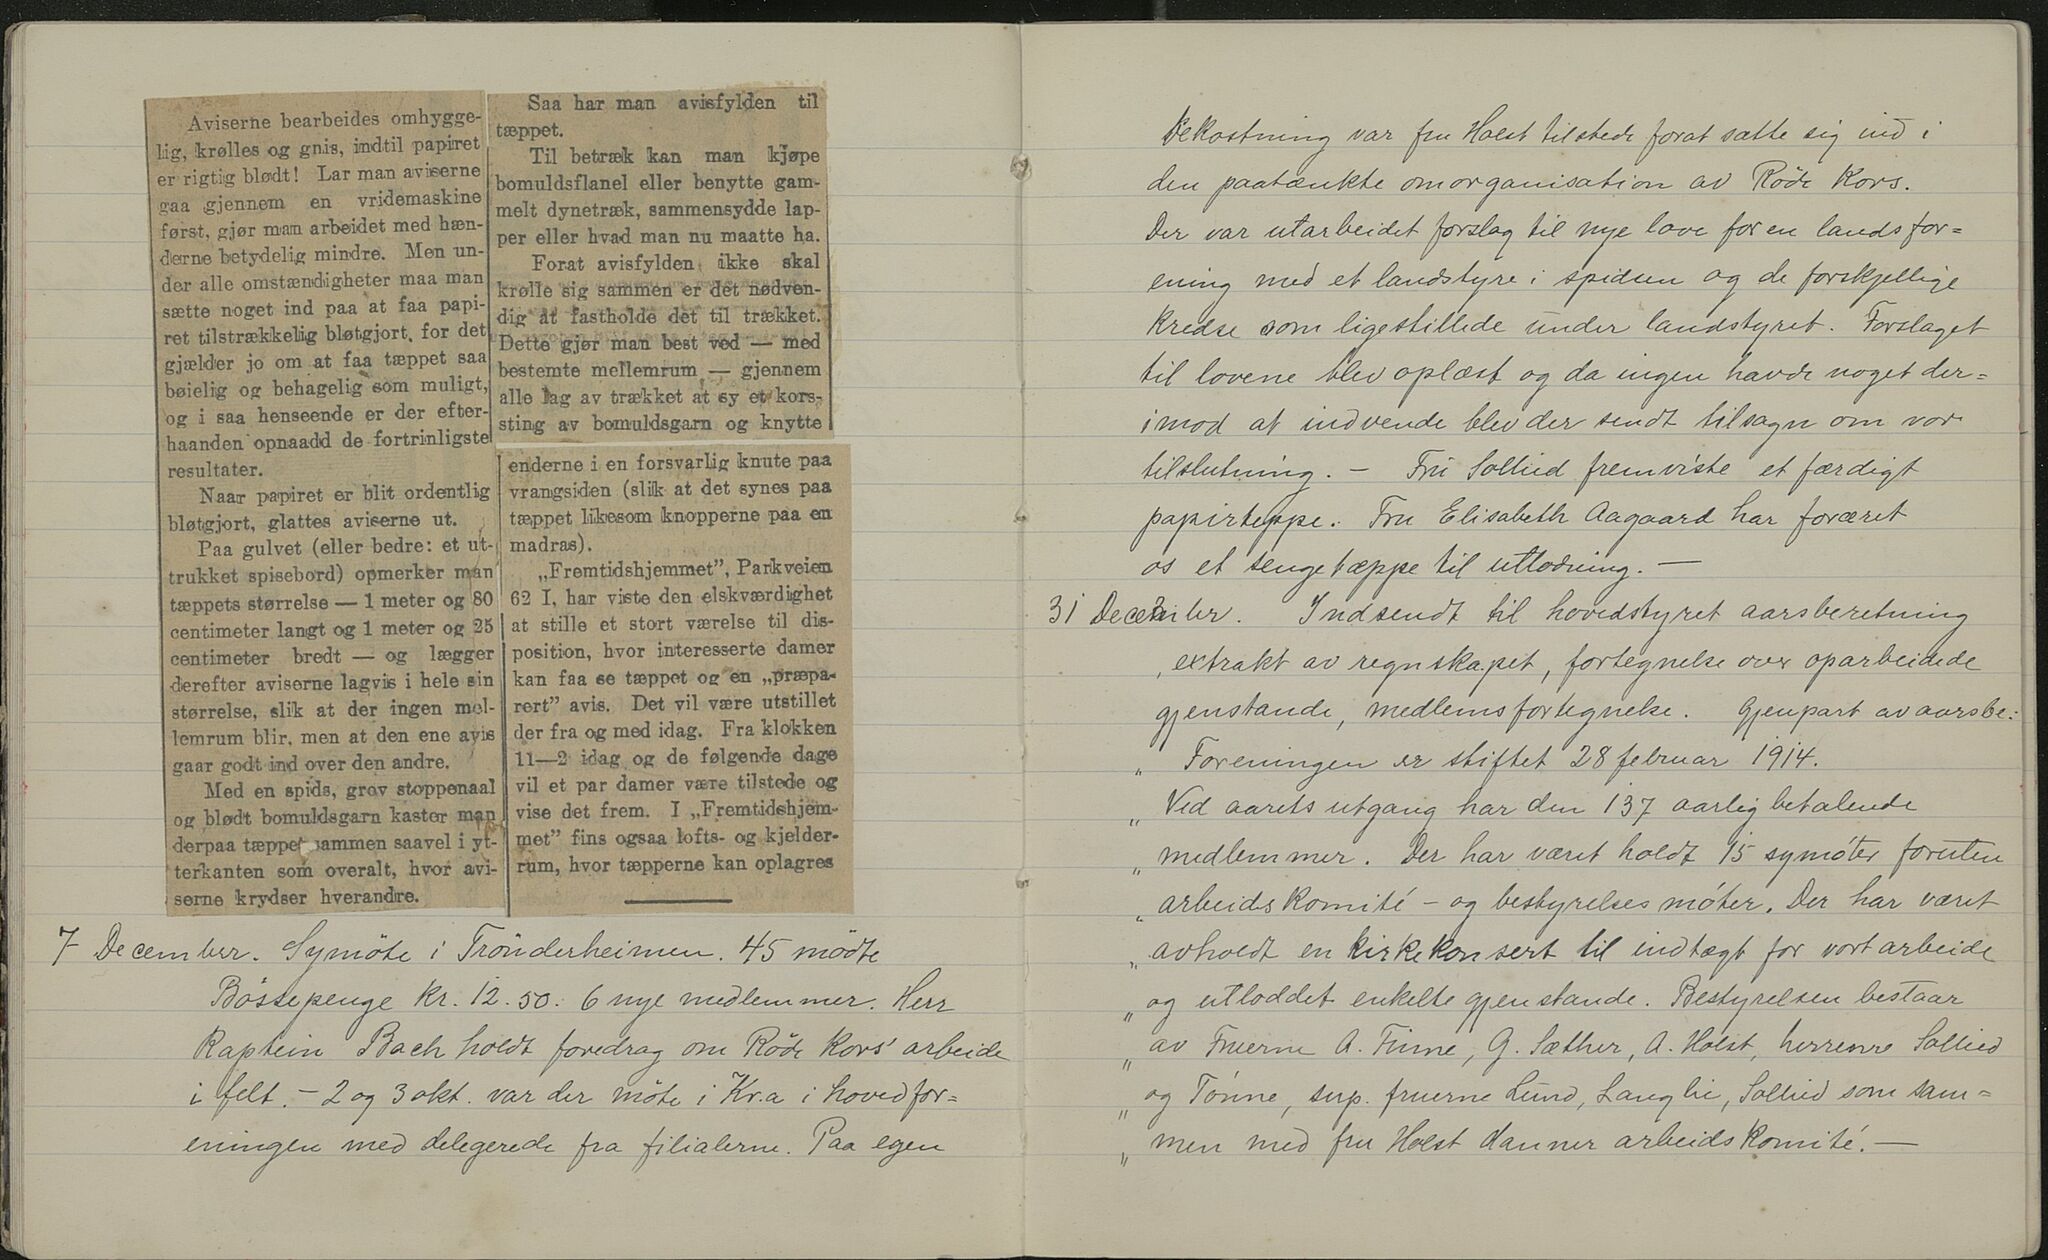 Aviserne bearbeides omhygge-
lig, krølles og gnis, indtil papiret
er rigtig blødt! Lar man aviserne
gaa gjennem en vridemaskine
først, gjør man arbeidet med hæn-
derne betydelig mindre. Men un-
der alle omstændigheter maa man
sætte noget ind paa at faa papi-
ret tilstrækkelig bløtgjort, for det
gjælder jo om at faa tæppet saa
bøielig og behagelig som muligt,
og i saa henseende er der efter-
haanden opnaadd de fortrinligste
resultater.
Naar papiret er blit ordentlig
bløtgjort, glattes aviserne ut.
Paa gulvet (eller bedre: et ut-
trukket spisebord) opmerker man
tæppets størrelse — 1 meter og 80
centimeter langt og 1 meter og 25
centimeter bredt — og lægger
derefter aviserne lagvis i hele sin
størrelse, slik at der ingen mel-
lemrum blir, men at den ene avis
gaar godt ind over den andre.
Med en spids, grov stoppenaal
og blødt bomuldsgarn kaster man
derpaa tæppet sammen saavel i yt-
terkanten som overalt, hvor avi-
serne krydser hverandre.
Saa har man avisfylden til
tæppet.
Til betræk kan man kjøpe
bomuldsflanel eller benytte gam-
melt dynetræk, sammensydde lap-
per eller hvad man nu maatte ha.
Forat avisfylden ikke skal
krølle sig sammen er det nødven-
dig at fastholde det til trækket.
Dette gjør man best ved — med
bestemte mellemrum — gjennem
alle lag av trækket at sy et kors-
sting av bomuldsgarn og knytte
enderne i en forsvarlig knute paa
vrangsiden (slik at det synes paa
tæppet likesom knopperne paa en
madras).
„Fremtidshjemmet”, Parkveien
62 I, har viste den elskværdighet
at stille et stort værelse til dis-
position, hvor interesserte damer
kan faa se tæppet og en „præpa-
rert” avis. Det vil være utstillet
der fra og med idag. Fra klokken
11—2 idag og de følgende dage
vil et par damer være tilstede og
vise det frem. I „Fremtidshjem-
met” fins ogsaa lofts- og kjelder-
rum, hvor tæpperne kan oplagres
7 December. Symöte i Trönderheimen. 45 mödte
Bössepenge kr. 12.50. 6 nye medlemmer. Herr
Kaptein Bach holdt foredrag om Röde Kors' arbeide
i felt. – 2 og 3 okt. var der möte i Kr.a i hovedfor=
eningen med delegerede fra filialerne. Paa egen
bekostning var fru Holst tilstede forat sætte sig ind i
den paatænkte omorganisation av Röde Kors.
Der var utarbeidet forslag til nye love for en landsfor=
ening med et landstyre i spidsen og de forskjellige
kredse som ligestillede under landstyret. Forslaget
til lovene blev oplæst og da ingen havde noget der=
imod at indvende blev der sendt tilsagn om vor
tilslutning. – Fru Sollied fremviste et færdigt
papirteppe. Fru Elisabeth Aagaard har foræret
os et sengetæppe til utlodning. —
31 December. Indsendt til hovedstyret aarsberetning
extrakt av regnskapet, fortegnelse over oparbeidede
gjenstande, medlemsfortegnelse. Gjenpart av aarsbe:
„ Foreningen er stiftet 28 februar 1914.
„ Ved aarets utgang har den 137 aarlig betalende
„ medlemmer. Der har været holdt 15 symöter foruten
„ arbeidskomité – og bestyrelsesmöter. Der har været
„ avholdt en kirkekonsert til indtægt for vort arbeide
„ og utloddet enkelte gjenstande. Bestyrelsen bestaar
„ av Fruerne A. Finne, G. Sæther, A. Holst, herrerne Sollied
„ og Tönne, sup. fruerne Lund, Langlie, Sollied som sam=
„ men med fru Holst danner arbeidskomité. —